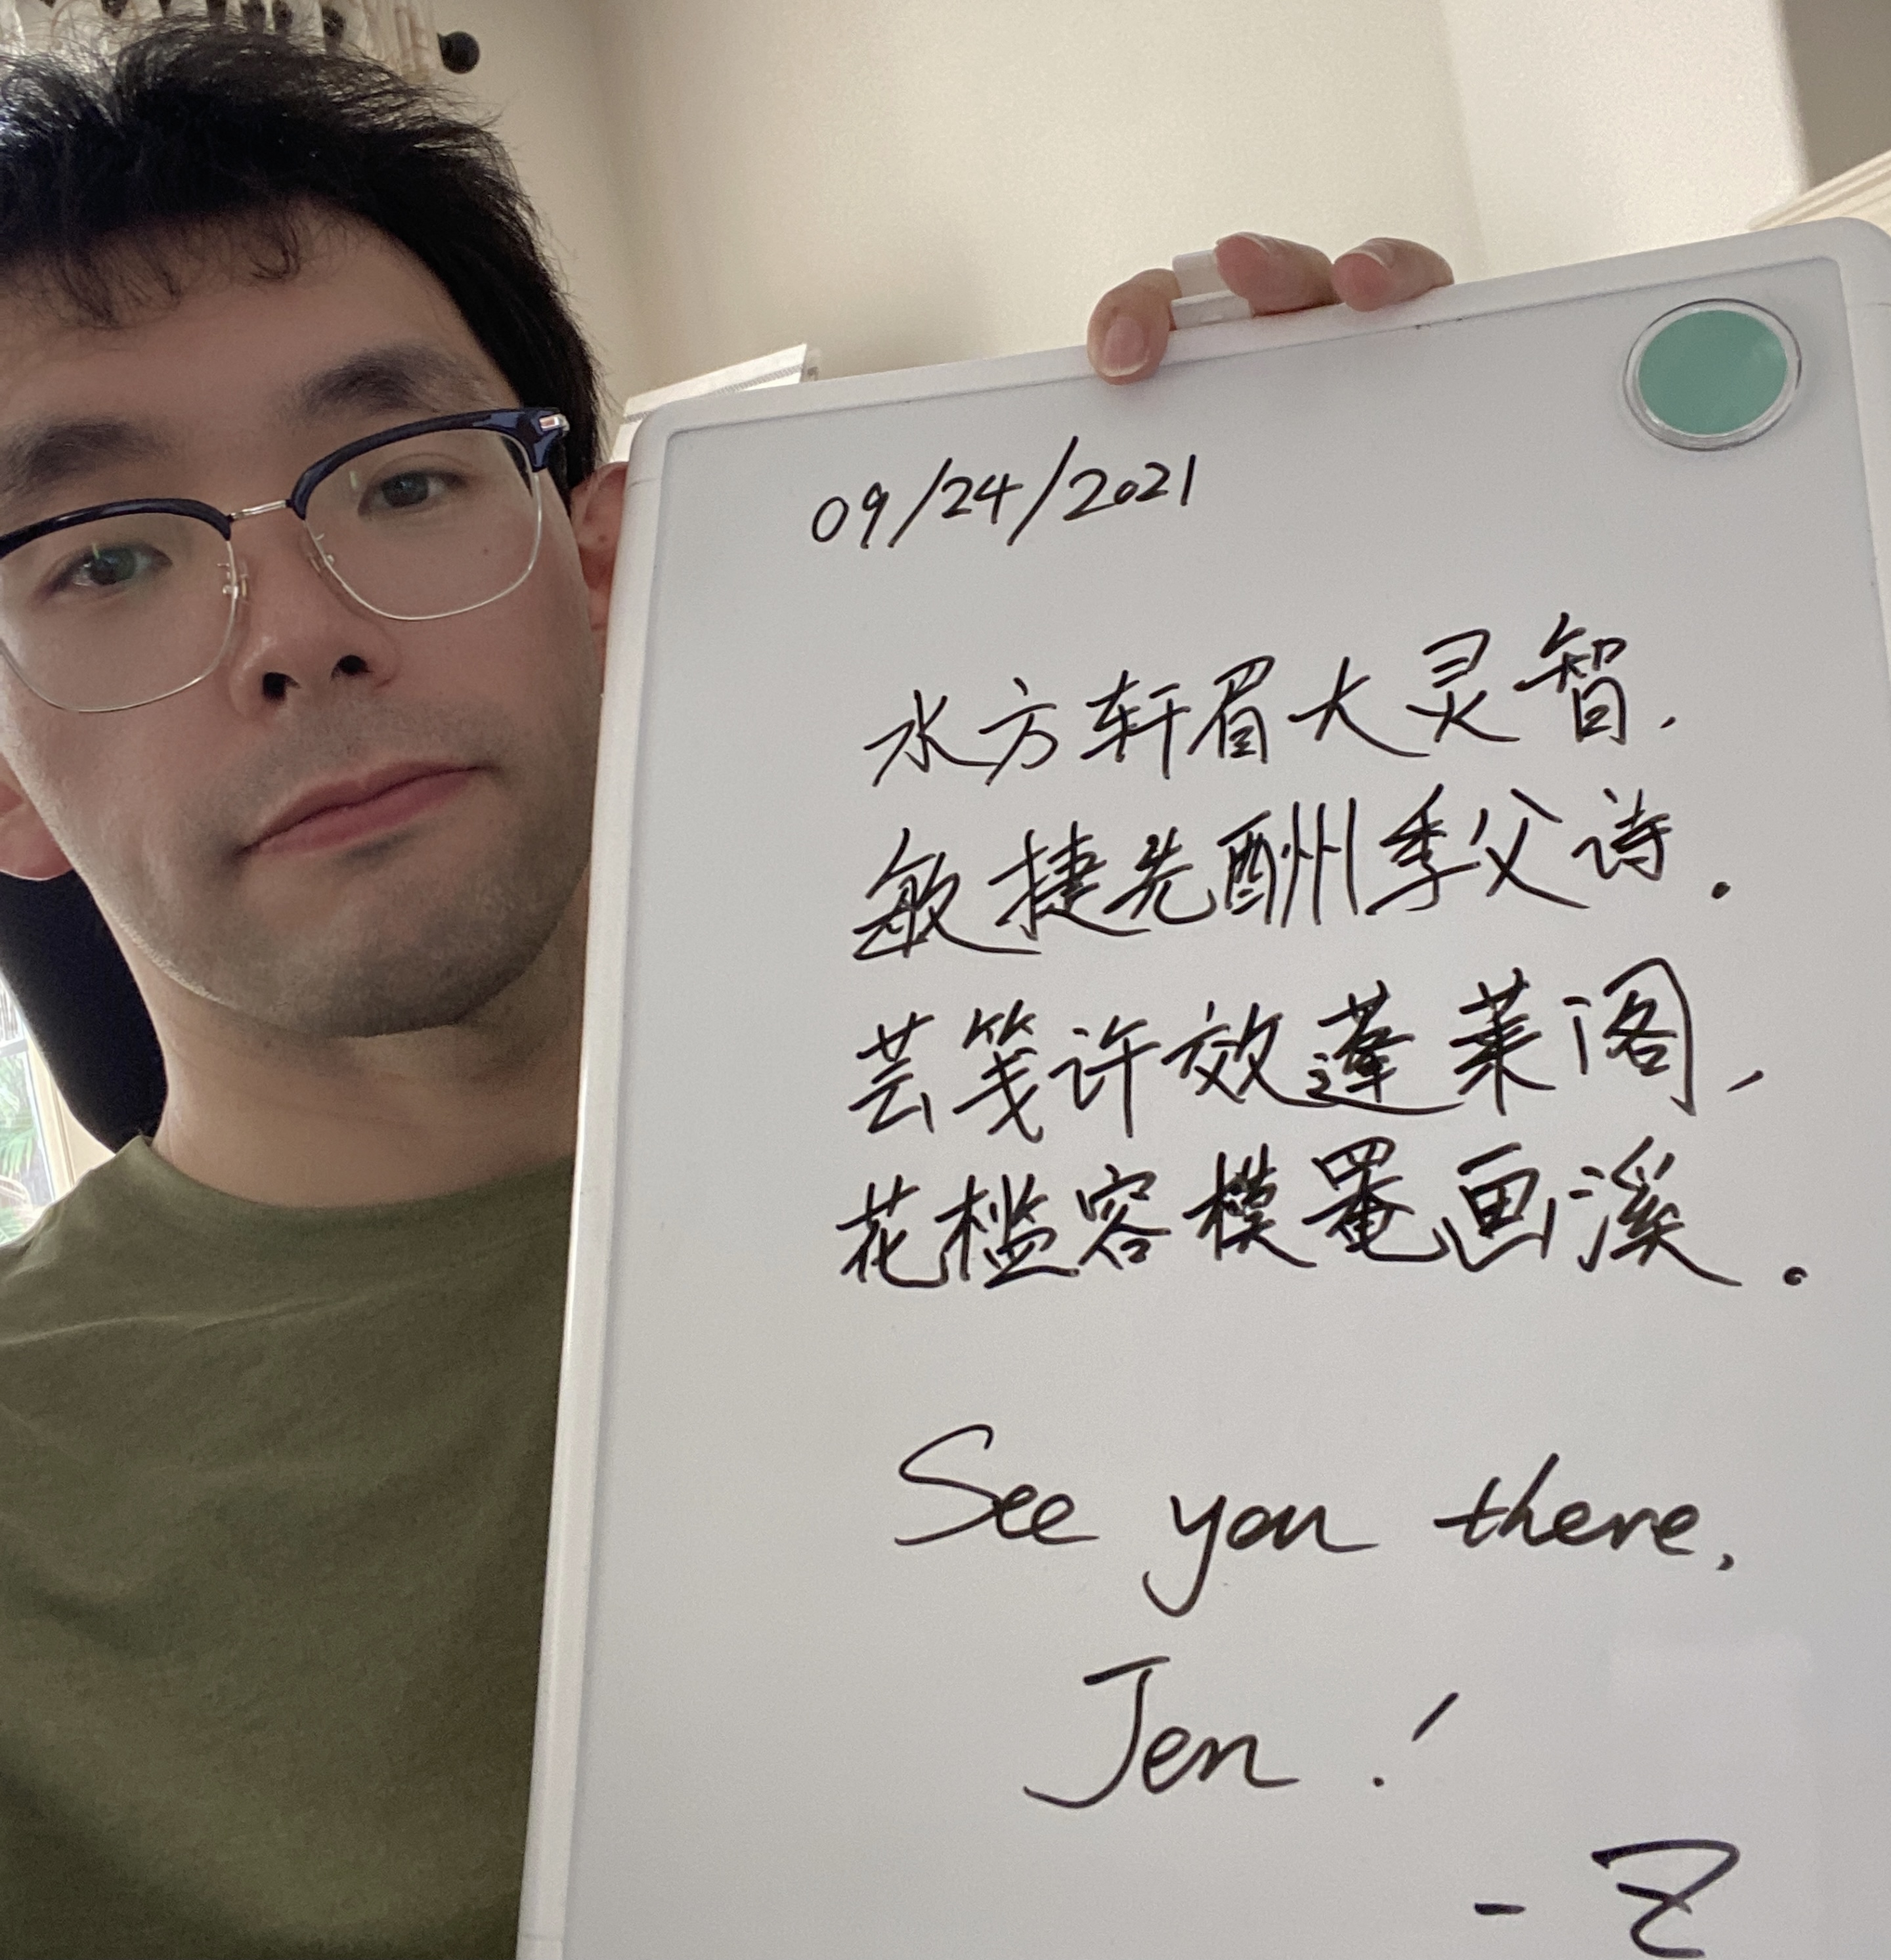 09/24/2021
水方轩眉大灵智，
敏捷先酬季父诗.
芸笺许效蓬莱阁，
花槛容模罨画溪。
See you there,
Jen!
- Z